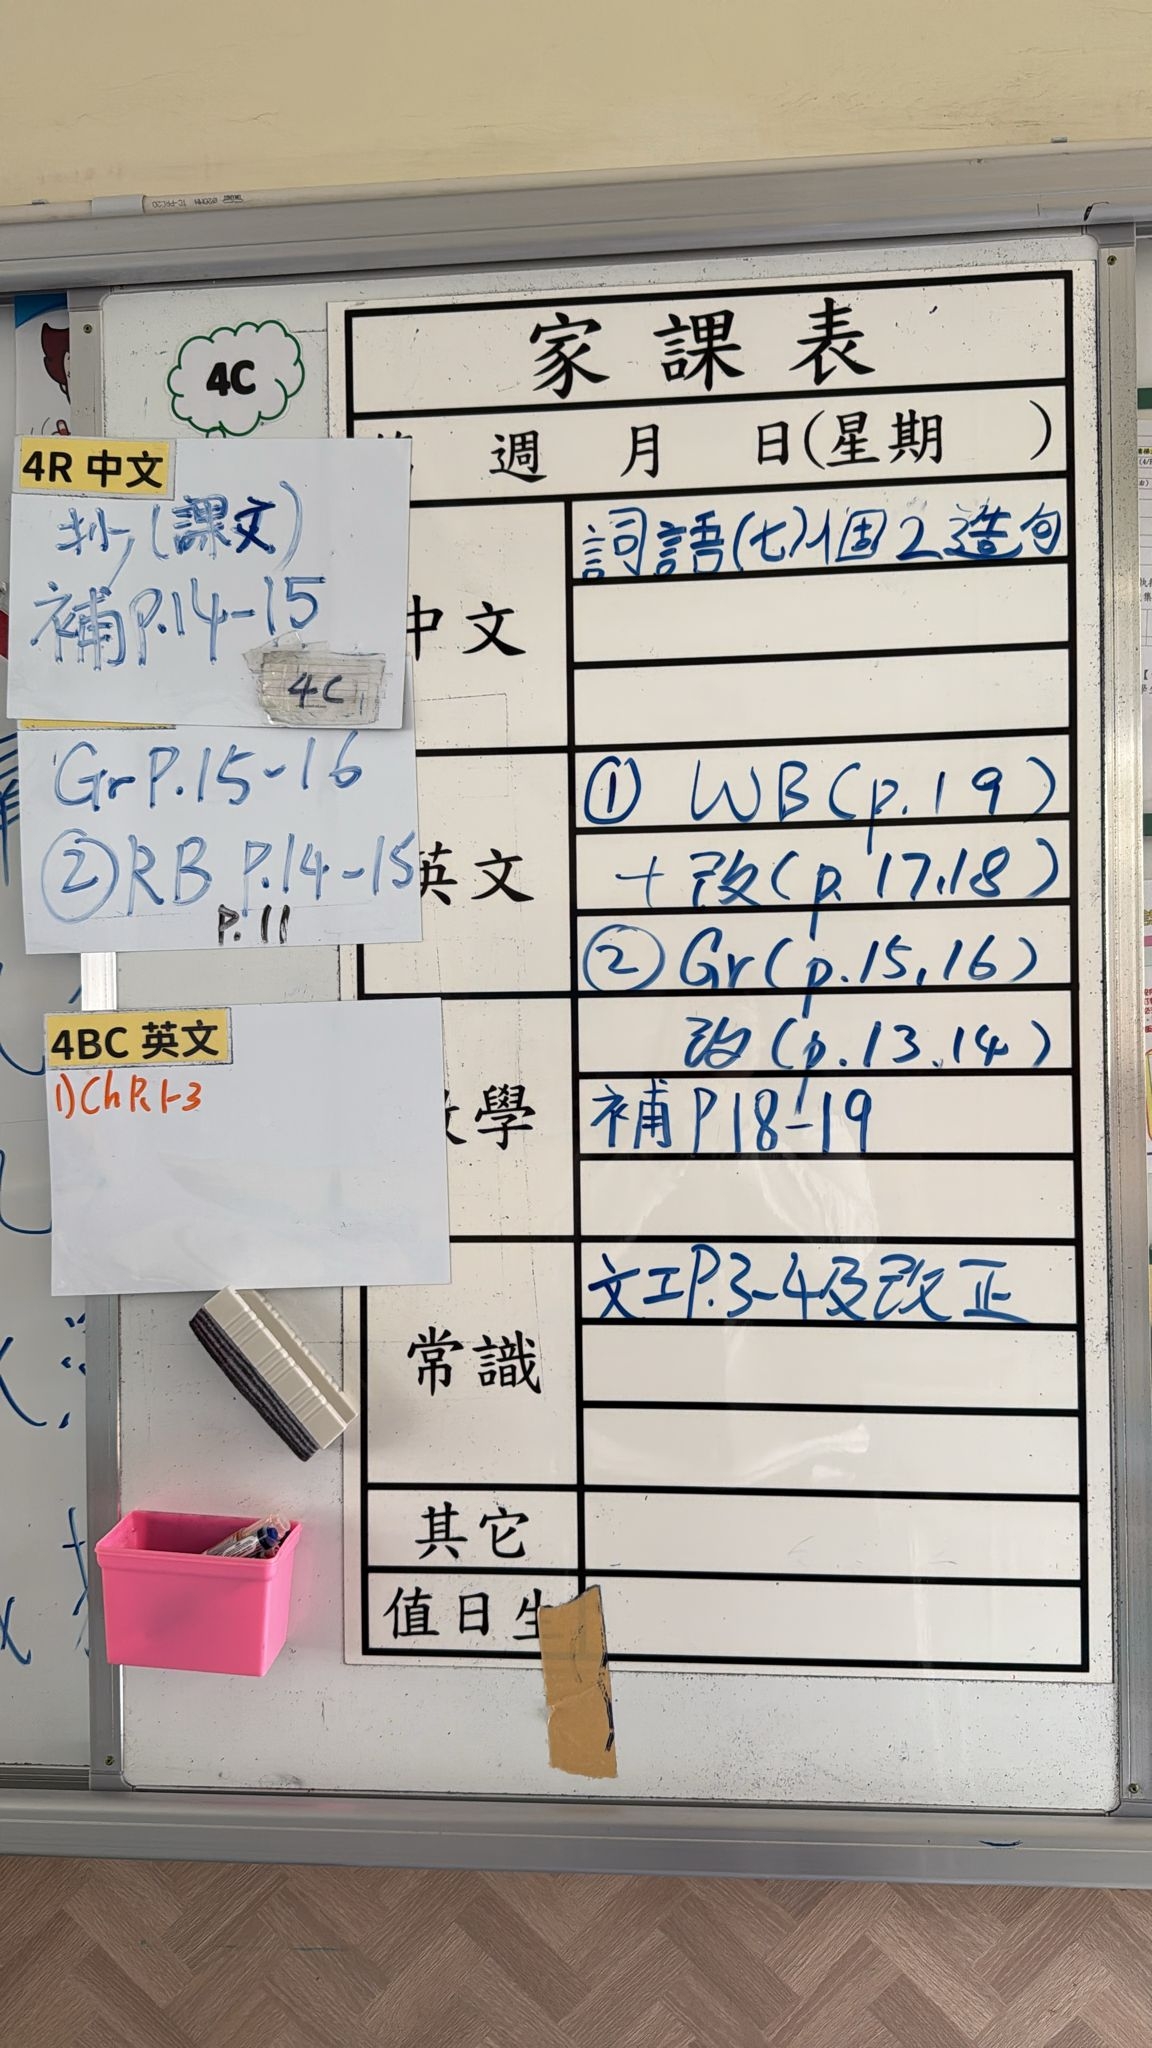 4C
家課表
週 月 日(星期 )
4R 中文
抄(課文)
補P.14-15
4C
GrP.15-16
②RB P.14-15
P.11
4BC 英文
1)Ch P.1-3
中文
詞語(七)1個2造句
英文
① WB(p.19)
+改(p.17,18)
②Gr(p.15,16)
改(p.13,14)
學
補P18-19
常識
文工P.3-4及改正
其它
值日生